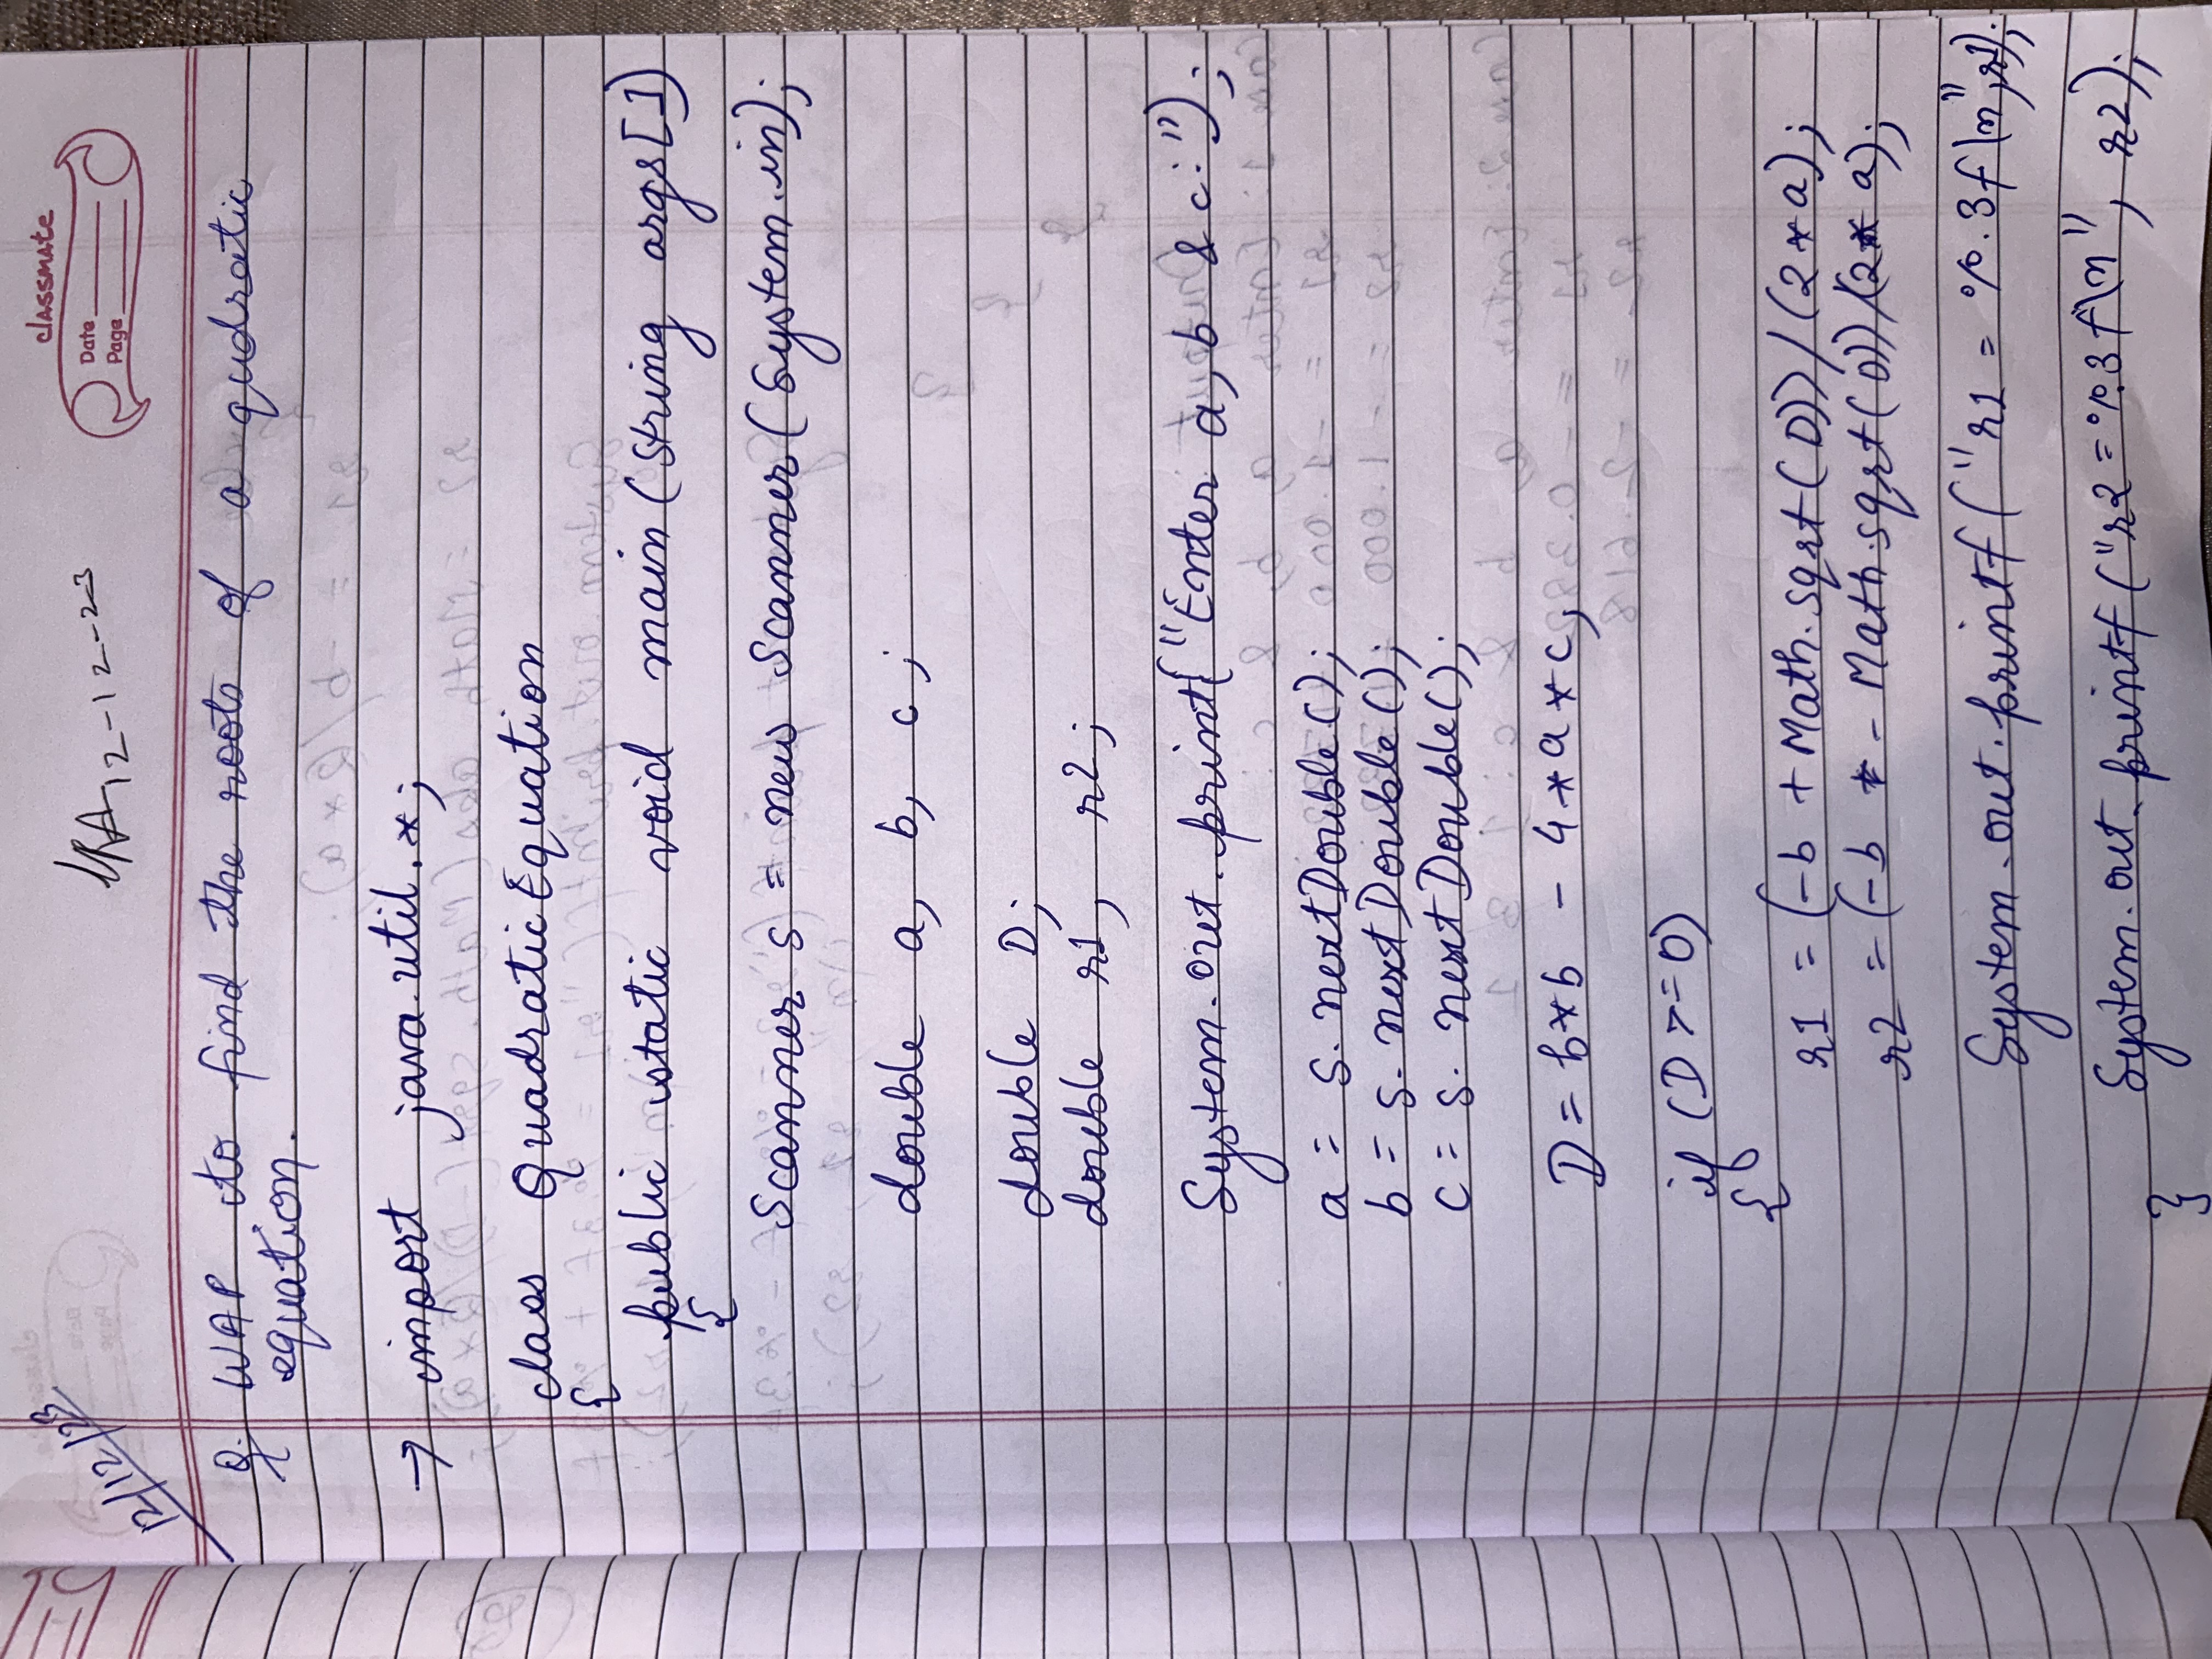 classmate
Date
Page
12/12/23
12-12-23
Q. WAP to find the roots of a qudratic
equation.
→ import java.util.*;
class QuadraticEquation
{
public static void main(String args[])
{
Scanner s = new Scanner(System.in);
double a, b, c;
double D;
double r1, r2;
System.out.print("Enter a, b & c:");
a = s.nextDouble();
b = s.nextDouble();
c = s.nextDouble();
D = b*b - 4*a*c;
if (D >= 0)
{
r1 = (-b + Math.sqrt(D))/(2*a);
r2 = (-b - Math.sqrt(D))/(2*a);
System.out.printf("r1 = %.3f\n",r1);
System.out.printf("r2 = %.3f\n", r2);
}